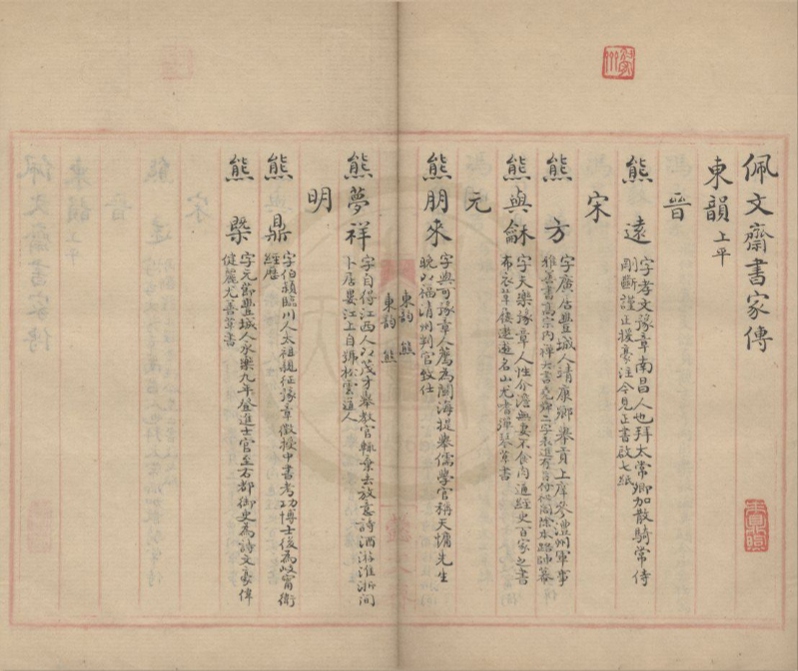 佩文齋書家傳
東韻上平
晉
熊遠 字孝文豫章南昌人也拜太常卿加散騎常侍
剛斷謹正援豪注今見正書啟七紙
宋
熊方 字廣居豐城人靖康鄉舉貢上庠參澧州軍事
雅善書高宗內禪大書堯舜二字表進
熊與龢 字天樂豫章人性介澹無妻不食肉通經史百家之書
布衣草履遨遊名山尤書彈琴草書
元
熊朋來 字與可豫章人薦為閩海提舉儒學官稱天慵先生
晚以福清州判官致仕
東韵 熊
東韵 熊
熊夢祥 字自得江西人以茂才舉教官輒棄去放意詩酒游淮浙間
卜居婁江上自號松雲道人
明
熊鼎 字伯穎臨川人太祖親征豫章徵授中書考功博士後為岐甯衛
經歷
熊槩 字元節豐城人永樂九年登進士官至右都御史為詩文豪偉
健麗尤善草書